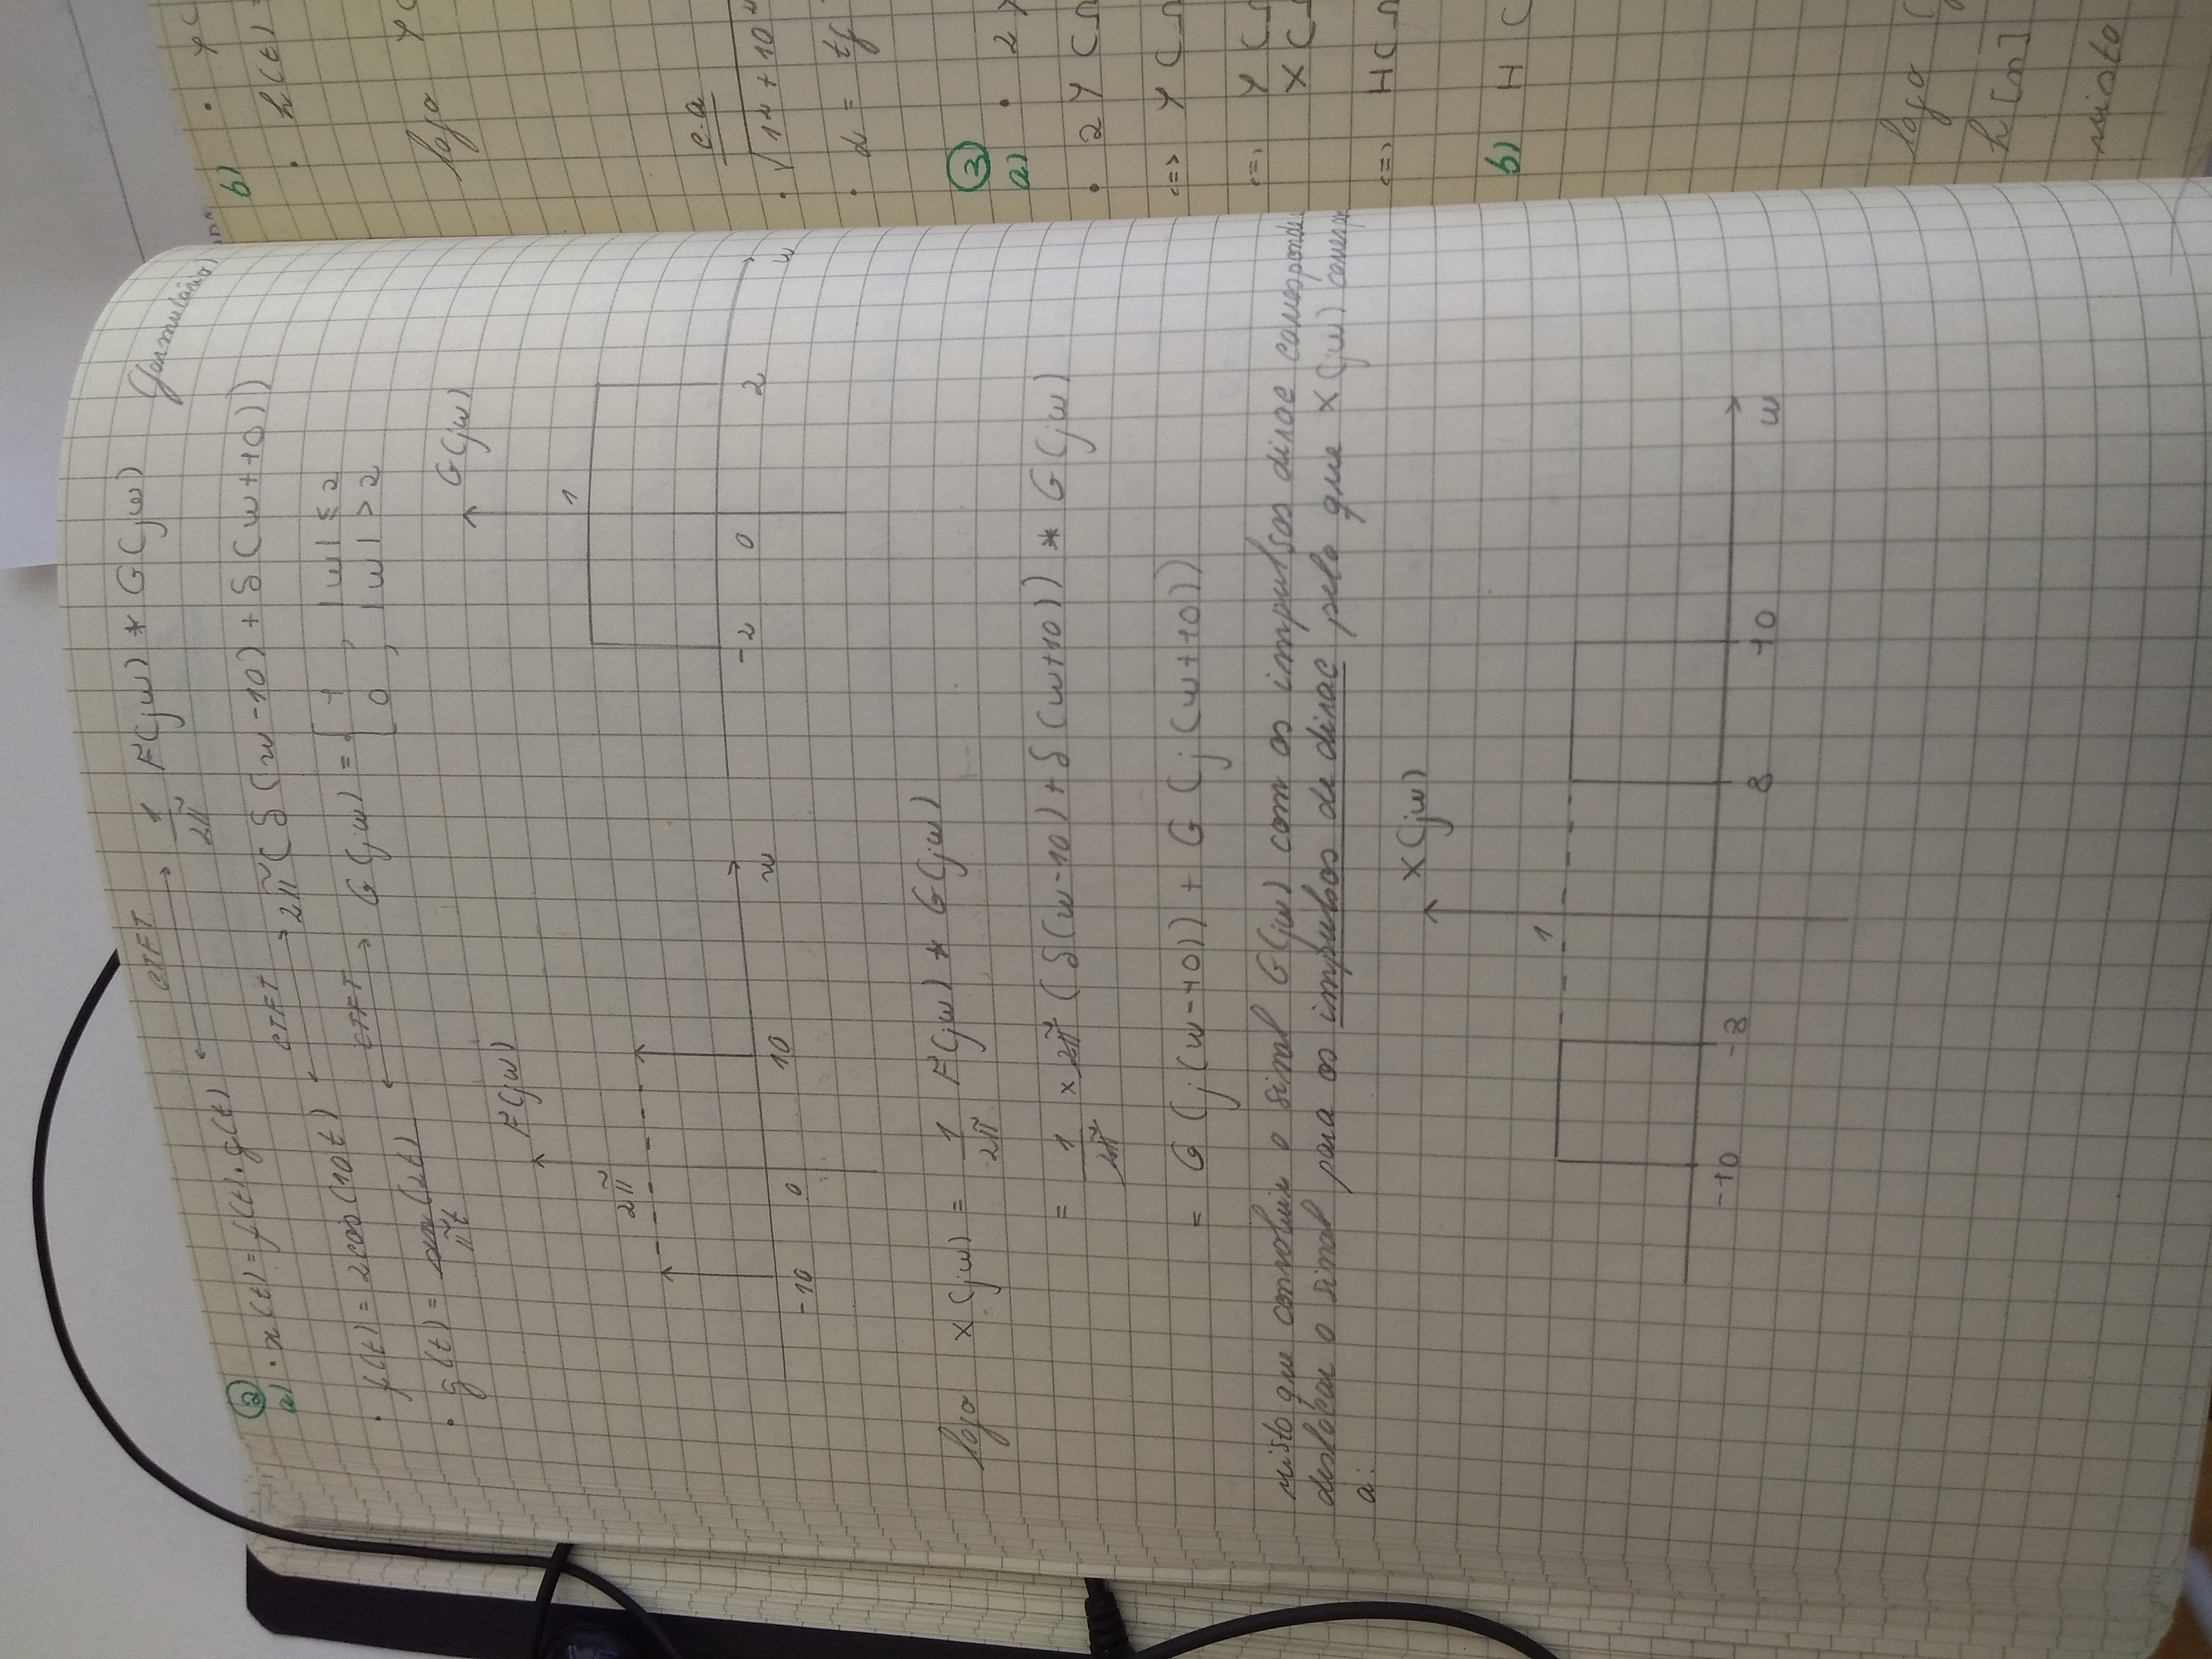 ②
a) · x(t) = f(t) · g(t) ←CTFT→ 1/2π F(jω) * G(jω) (formulário)
· f(t) = 2cos(10t) ←CTFT→ 2π(δ(ω-10) + δ(ω+10))
· g(t) = sen(2t)/πt ←CTFT→ G(jω) = { 1 , |ω| ≤ 2
0 , |ω| > 2
F(jω)
2π
-10 0 10 ω
G(jω)
1
-2 0 2 ω
logo X(jω) = 1/2π F(jω) * G(jω)
= 1/2π × 2π (δ(ω-10) + δ(ω+10)) * G(jω)
= G(j(ω-10)) + G(j(ω+10))
visto que convoluir o sinal G(jω) com os impulsos dirac corresponde
deslocar o sinal para os impulsos de dirac pelo que X(jω)
a:
X(jω)
1
-10 -8 8 10 ω
b)
· h(t) =
logo
c.a
③
a) ·
· 2Y(Ω
<=> Y(Ω
<=> Y(Ω
X(Ω
<=> H(Ω
b) H(
logo
h[n]
visto